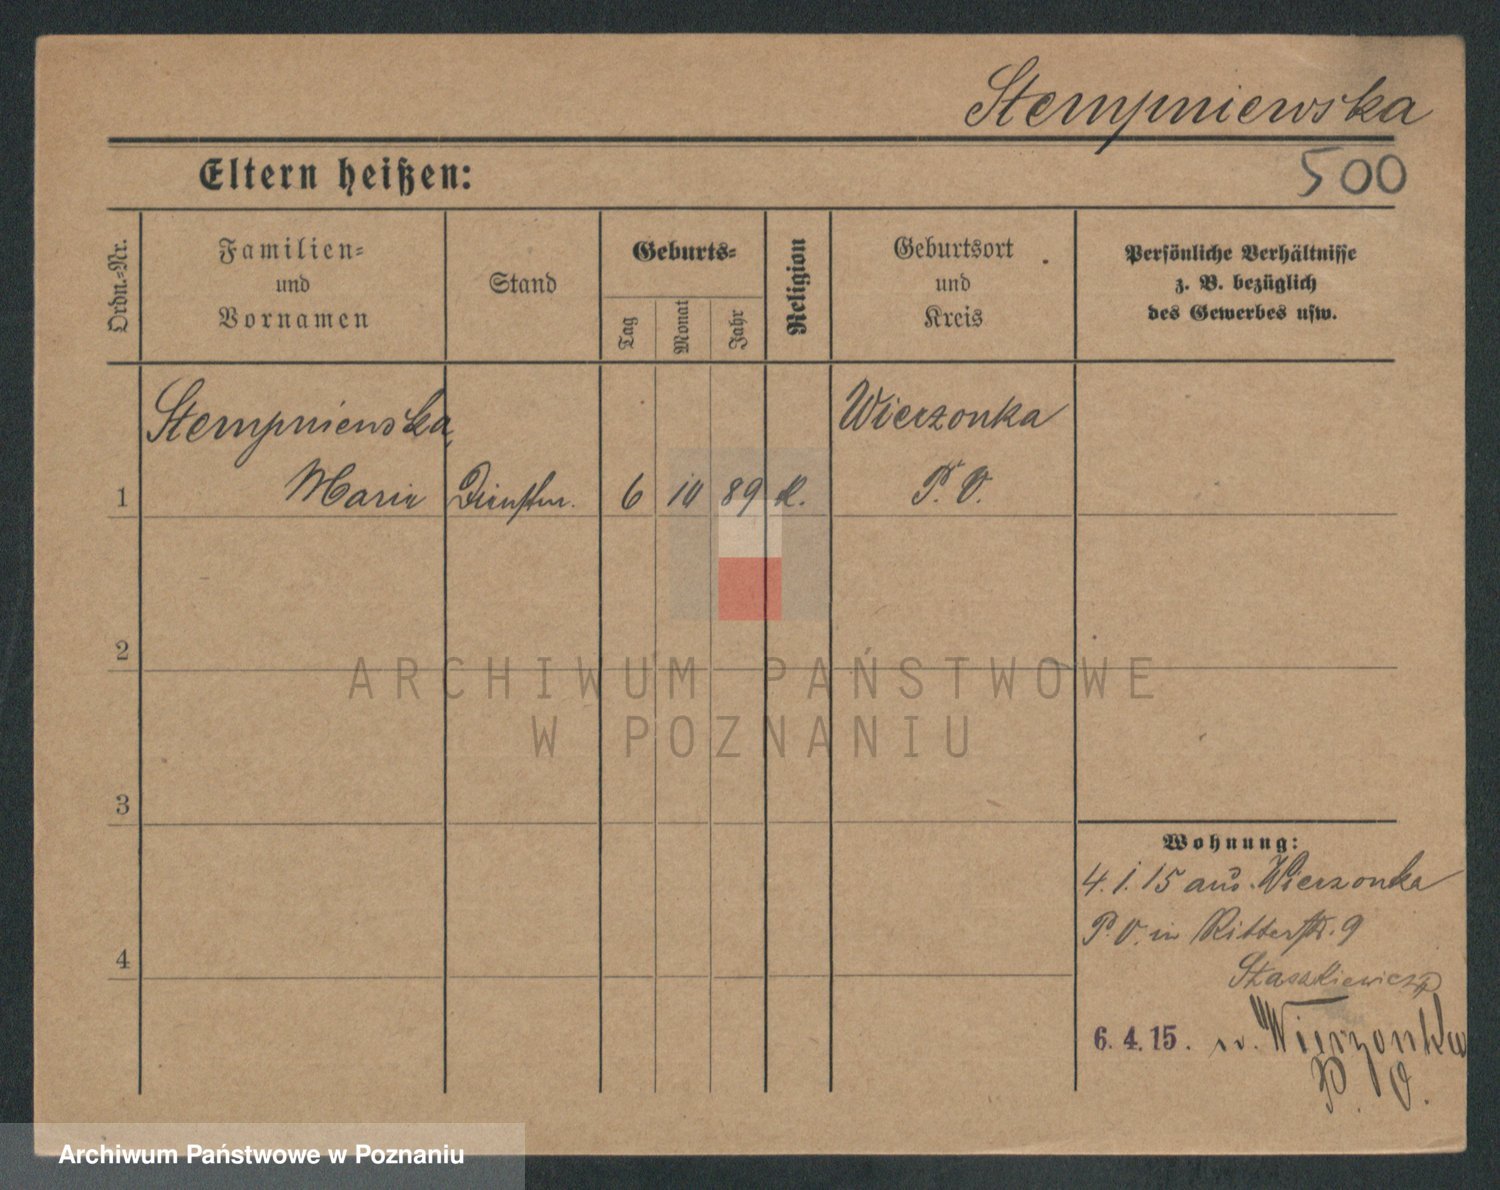 Stempniewska
500
Eltern heißen:
Ordn.-Nr.
Familien-
und
Vornamen
Stand
Geburts-
Tag
Monat
Jahr
Religion
Geburtsort
und
Kreis
Persönliche Verhältnisse
z. B. bezüglich
des Gewerbes usw.
1
Stempniewska,
Maria
Dienstm.
6
10
89
K.
Wierzonka
P. O.
2
3
4
Wohnung:
4. 1. 15 aus. Wierzonka
P. O. in Ritterstr. 9
Staszkiewicz
6. 4. 15. n. Wierzonka
P. O.
ARCHIWUM PAŃSTWOWE
W POZNANIU
Archiwum Państwowe w Poznaniu